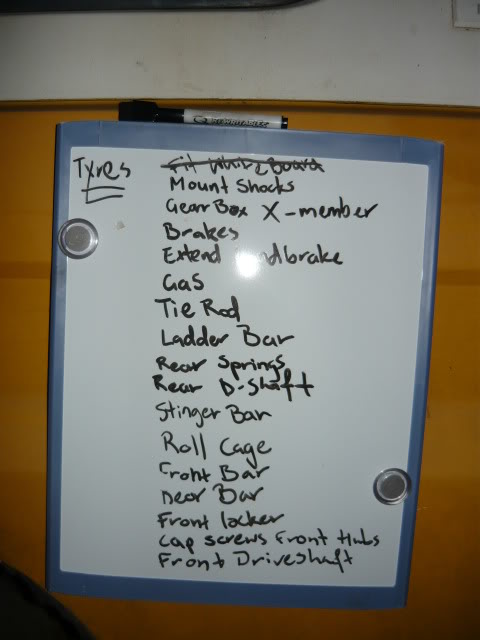 Tyres
Fit White Board
Mount Shocks
GearBox X-member
Brakes
Extend handbrake
Gas
Tie Rod
Ladder Bar
Rear Springs
Rear D-Shaft
Stinger Bar
Roll Cage
Front Bar
Rear Bar
Front locker
Cap screws Front Hubs
Front Driveshaft